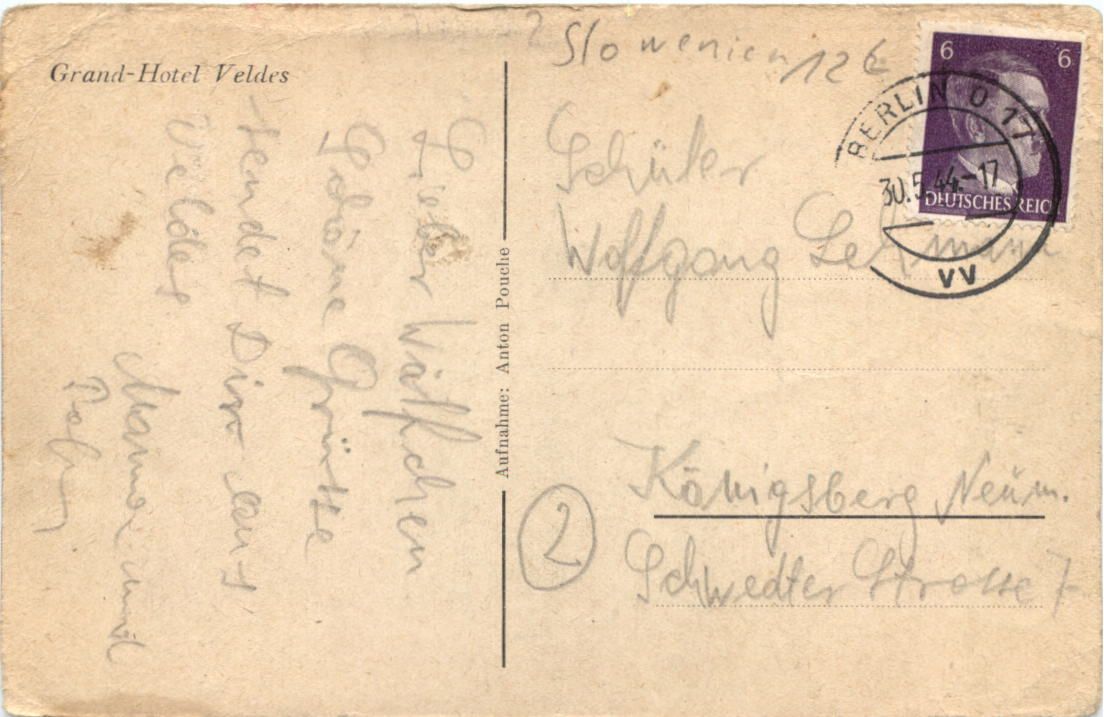 Grand-Hotel Veldes
Slowenien 126
Lieber Wölfchen
Schöne Grüsse
sendet Dir aus
Veldes
Mama und
Aufnahme: Anton Pouche
6 6
DEUTSCHES REICH
BERLIN O 17
30.5.44.-17
VV
Schüler
Wolfgang Lehmann
2
Königsberg Neum.
Schwedter Strasse 7